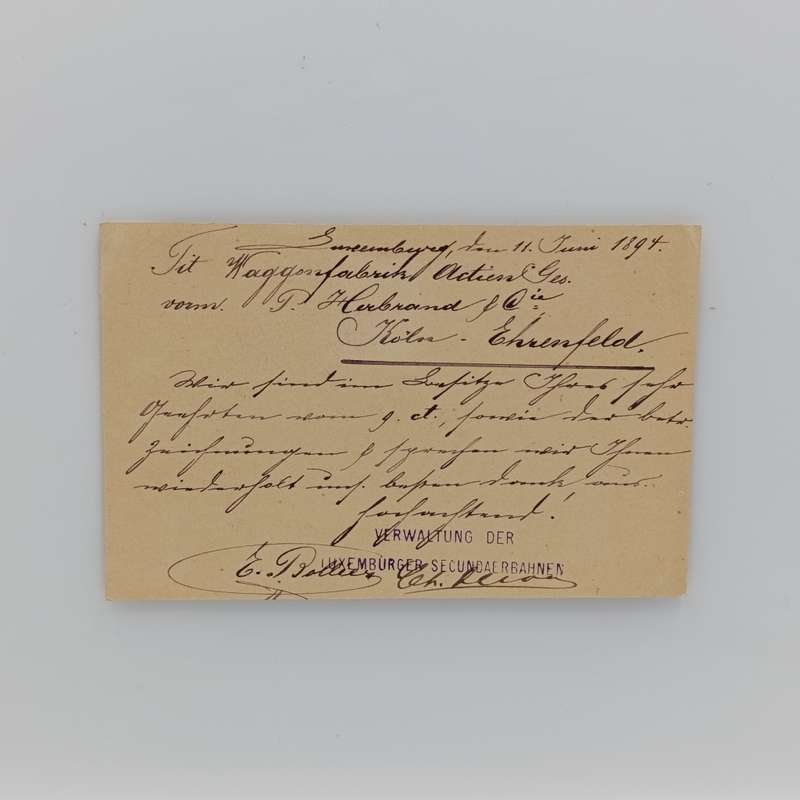 Luxemburg, den 11. Juni 1894.
Tit Waggonfabrik Actien Ges.
vorm. P. Herbrand & Cie
Köln - Ehrenfeld.
Wir sind im Besitze Ihres sehr
Geehrten vom 9. ct., sowie der betr.
Zeichnungen & sprechen wir Ihnen
wiederholt uns. besten Dank aus.
Hochachtend!
VERWALTUNG DER
LUXEMBURGER SECUNDAERBAHNEN
E. Ch.